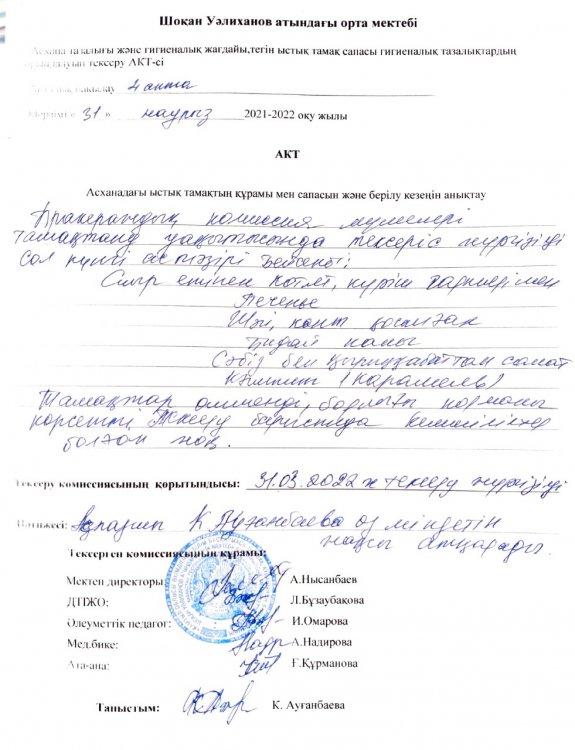 Шоқан Уәлиханов атындағы орта мектебі
Асхана тазалығы және гигиеналық жағдайы,тегін ыстық тамақ сапасы гигиеналық тазалықтардың
тексеру АКТ-сі
4 апта
31 » наурыз 2021-2022 оқу жылы
АКТ
Асханадағы ыстық тамақтың құрамы мен сапасын және берілу кезеңін анықтау
Бракераждық комиссия мүшелері
уақытысында тексеріс жүргізілді
Сол күнгі ас мәзірі Бейсенбі:
Сиыр етінен котлет, күріш гарнирімен
Печенье
Шәй, қант қосылған
Бидай наны
Сәбіз бен қырыққабаттан салат
Кәмпит (карамель)
Тамақтар өлшенді, барлығы норманы
көрсетті. Тексеру барысында кемшіліктер
болған жоқ.
Тексеру комиссиясының қорытындысы: 31.03.2022 ж тексеру жүргізілді
Нәтижесі: Аспазшы К. Ауғанбаева өз міндетін
жақсы атқарады.
Тексерген комиссиясының құрамы:
Мектеп директоры: А.Нысанбаев
ДТІЖО: Л.Бұзаубақова
Әлеуметтік педагог: И.Омарова
Мед.бике: А.Надирова
Ата-ана: Ғ.Құрманова
Таныстым: К. Ауғанбаева